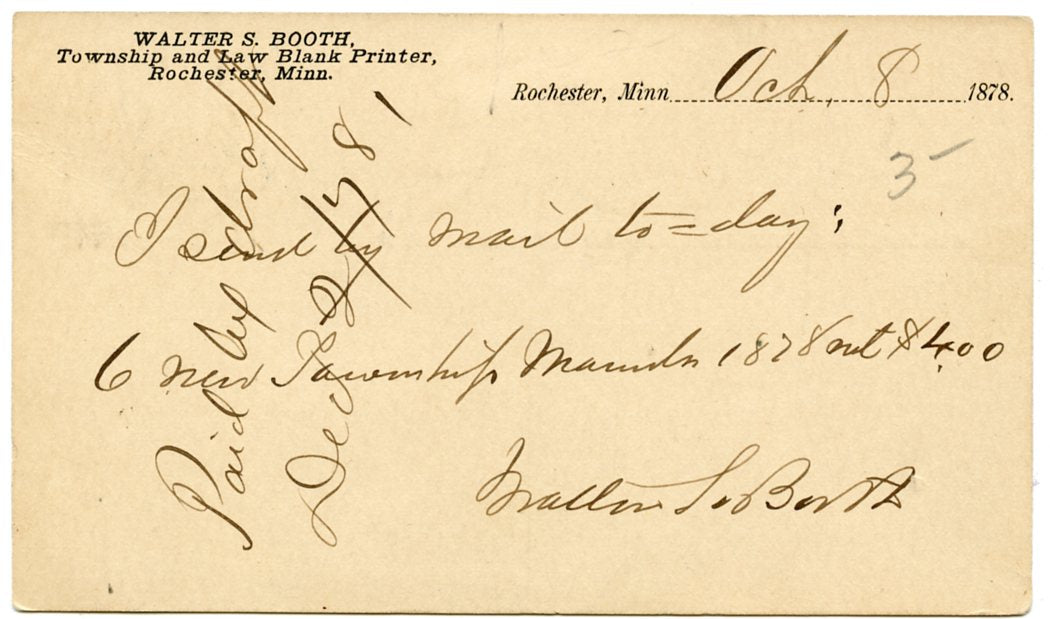 WALTER S. BOOTH,
Township and Law Blank Printer,
Rochester, Minn.
Rochester, Minn. Oct. 8 1878.
3-
I send by mail to=day:
6 new Township Manuals 1878 net $4.00
Walter S. Booth
Paid by draft
Dec 81